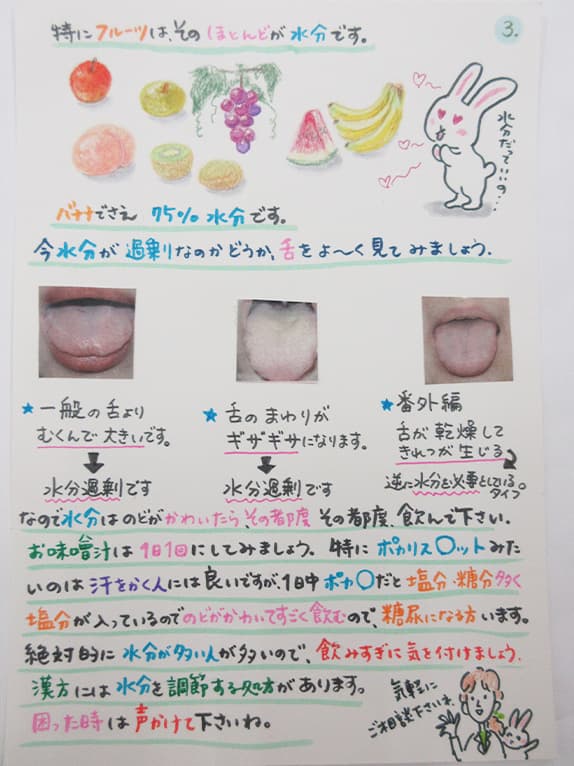 3.
特にフルーツは、そのほとんどが水分です。
水分だっていいの…
バナナでさえ 75% 水分です。
今水分が過剰なのかどうか、舌をよ〜く見てみましょう.
★一般の舌より
むくんで大きいです。
水分過剰です
★舌のまわりが
ギザギザになります。
水分過剰です
★番外編
舌が乾燥して
きれつが生じる
逆に水分を必要としている。
タイプ
なので水分はのどがかわいたら、その都度 その都度、飲んで下さい.
お味噌汁は1日1回にしてみましょう。特にポカリス〇ットみた
いのは汗をかく人には良いですが、1日中ポカ〇だと塩分・糖分多く
塩分が入っているのでのどがかわいてすごく飲むので、糖尿になる方います。
絶対的に水分が多い人が多いので、飲みすぎに気を付けましょう.
漢方には水分を調節する処方があります。
困った時は声かけて下さいね。
気軽に
ご相談下さいネ